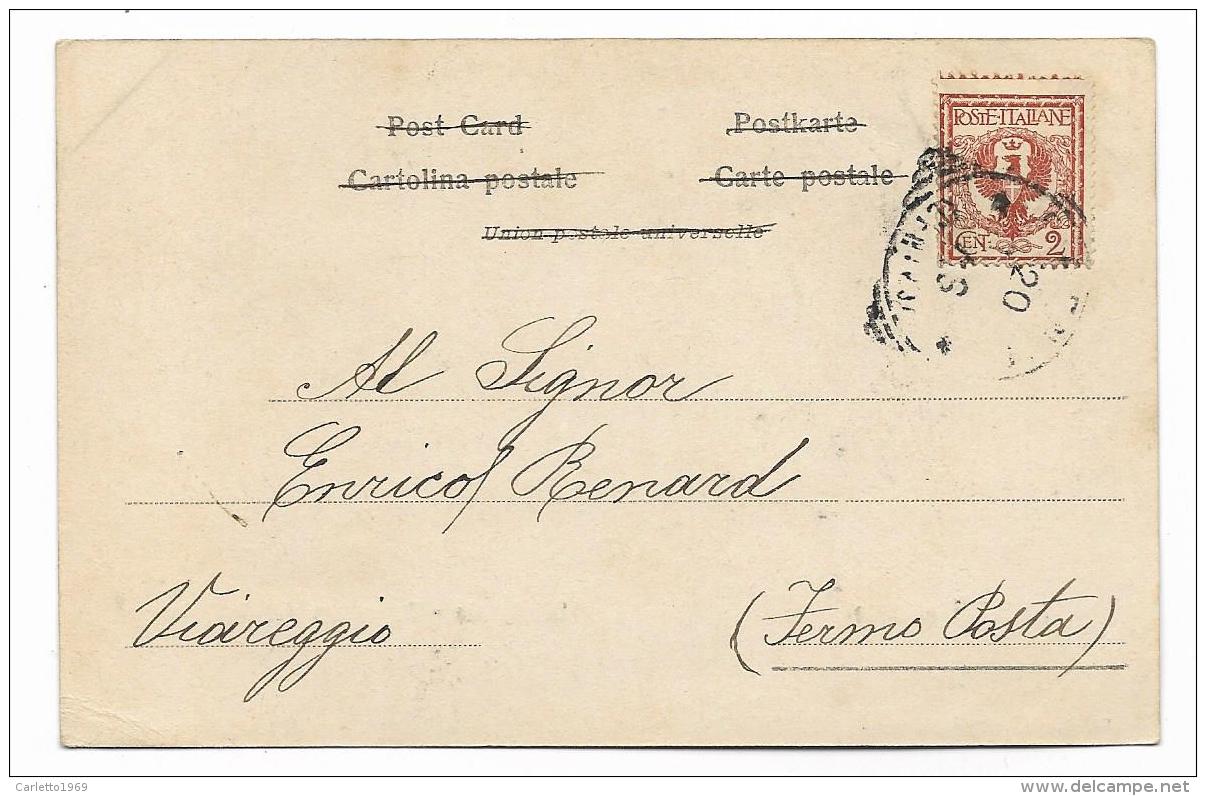 Post Card
Postkarte
Cartolina postale
Carte postale
Union postale universelle
POSTE·ITALIANE
CEN. 2
20
Al Signor
Enrico Renard
Viareggio
(Fermo Posta)
Carletto1969
delcampe.net